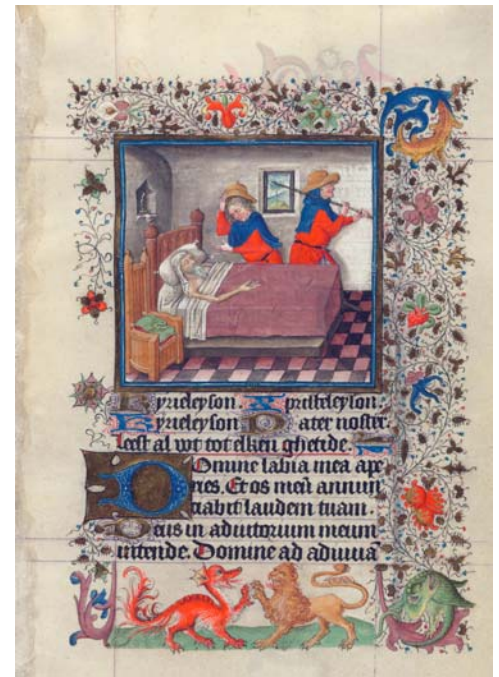 Kyrieleyson. Xpristeleyson.
Kyrieleyson Pater noster
leest al wt tot elken ghetide.
Domine labia mea ape
ries. Et os meū annun
tiabit laudem tuam.
Deus in adiutorium meum
intende. Domine ad adiuua